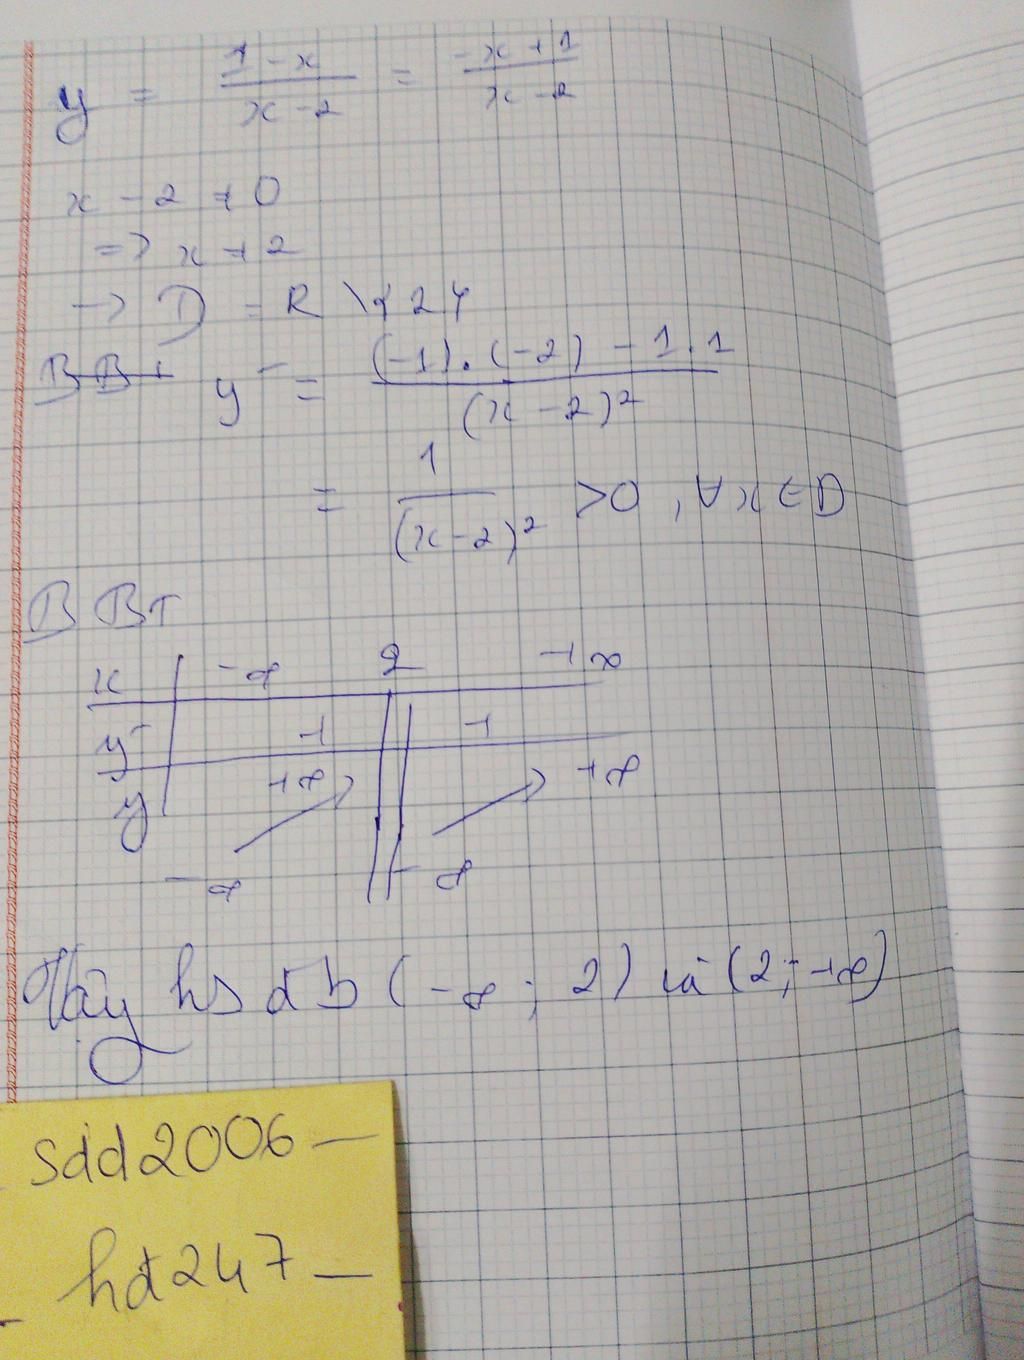 y = (1 - x)/(x - 2) = (-x + 1)/(x - 2)
x - 2 ≠ 0
=> x ≠ 2
→ D = R \ {2}
BBT y' = ((-1).(-2) - 1.1)/(x - 2)²
= 1/(x - 2)² > 0 , ∀x ∈ D
BBT
x -∞ 2 +∞
y' + +
y +∞ +∞
-∞ -∞
Vậy hs đb (-∞ ; 2) và (2 ; +∞)
sdd2006 —
hđ247 —